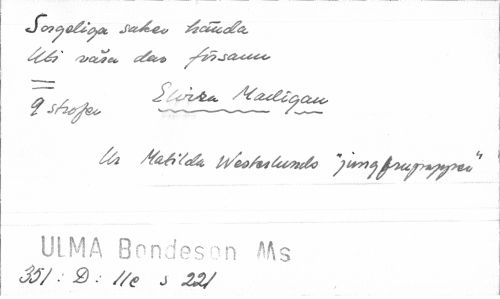 Sorgeliga saker hända
Uti våra dar försann
9 strofer Elvira Madigan
Ur Matilda Westerlunds "jungfrupapper"
ULMA Bondeson Ms
351: D: 11e s 221